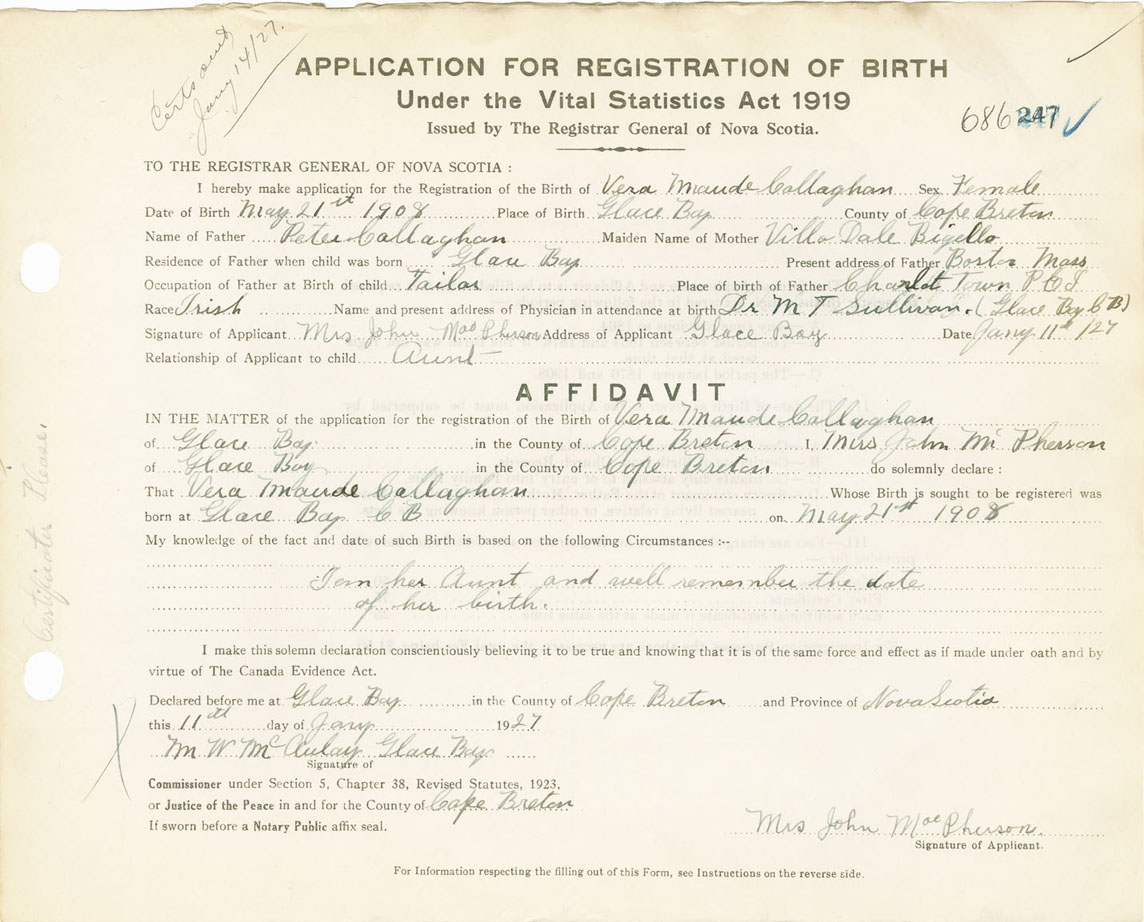 Certs out, Jany 14/27.
APPLICATION FOR REGISTRATION OF BIRTH
Under the Vital Statistics Act 1919
Issued by The Registrar General of Nova Scotia.
686 247
TO THE REGISTRAR GENERAL OF NOVA SCOTIA :
I hereby make application for the Registration of the Birth of Vera Maude Callaghan Sex Female
Date of Birth May 21st 1908 Place of Birth Glace Bay County of Cape Breton
Name of Father Peter Callaghan Maiden Name of Mother Villa Dale
Residence of Father when child was born Glace Bay Present address of Father Boston Mass
Occupation of Father at Birth of child Tailor Place of birth of Father Charlot Town P.E.I
Race Irish Name and present address of Physician in attendance at birth Dr M T Sullivan. (Glace Bay C B)
Signature of Applicant Mrs John MacPherson Address of Applicant Glace Bay Date Jany 11th /27
Relationship of Applicant to child Aunt
AFFIDAVIT
IN THE MATTER of the application for the registration of the Birth of Vera Maude Callaghan
of Glace Bay in the County of Cape Breton I, Mrs John Mc Pherson
of Glace Bay in the County of Cape Breton do solemnly declare :
That Vera Maude Callaghan Whose Birth is sought to be registered was
born at Glace Bay C B on May 21st 1908
My knowledge of the fact and date of such Birth is based on the following Circumstances :--
I am her Aunt and well remember the date
of her birth.
I make this solemn declaration conscientiously believing it to be true and knowing that it is of the same force and effect as if made under oath and by
virtue of The Canada Evidence Act.
Declared before me at Glace Bay in the County of Cape Breton and Province of Nova Scotia
this 11th day of Jany 1927
M W McAulay Glace Bay
Signature of
Commissioner under Section 5, Chapter 38, Revised Statutes, 1923,
or Justice of the Peace in and for the County of Cape Breton
If sworn before a Notary Public affix seal.
Mrs John MacPherson.
Signature of Applicant.
For Information respecting the filling out of this Form, see Instructions on the reverse side.
Certificates Please.